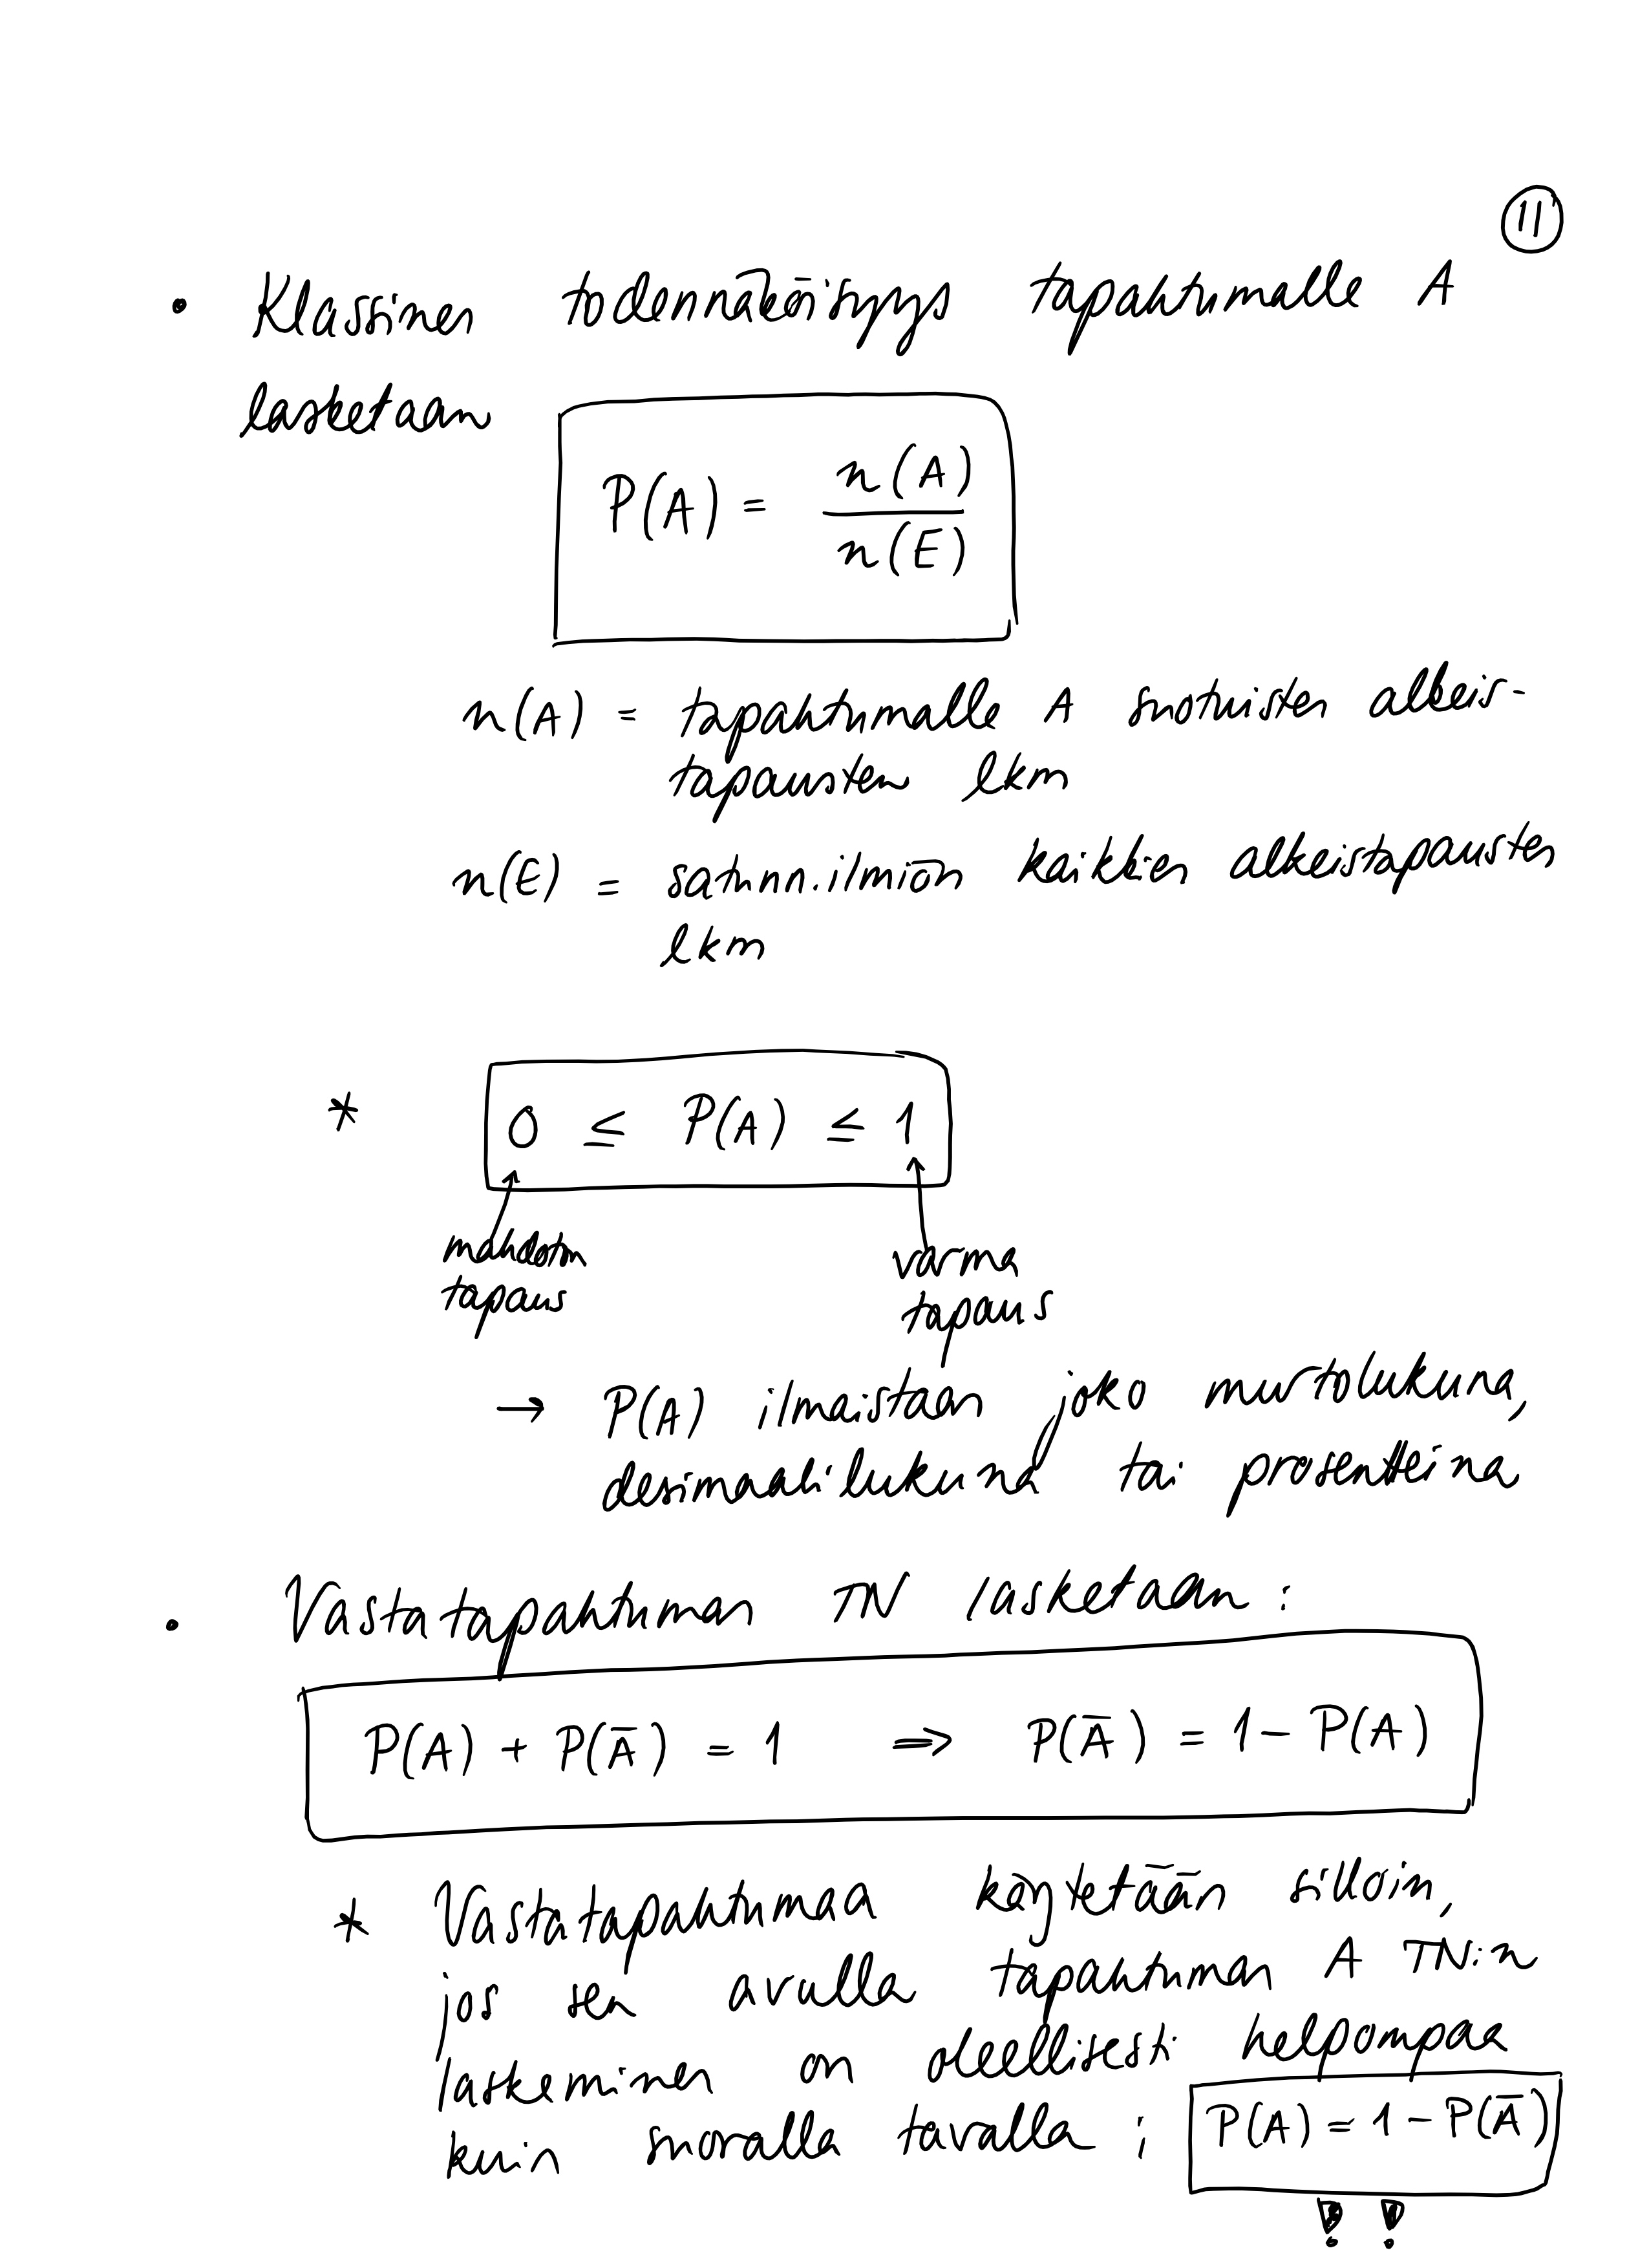 11
• Klassinen todennäköisyys tapahtumalle A
lasketaan
P(A) = n(A) / n(E)
n(A) = tapahtumalle A suotuisten alkeis-
tapausten lkm
n(E) = satunn.ilmiön kaikkien alkeistapausten
lkm
* 0 ≤ P(A) ≤ 1
mahdoton varma
tapaus tapaus
→ P(A) ilmaistaan joko murtolukuna,
desimaalilukuna tai prosentteina
• Vastatapahtuman TN lasketaan :
P(A) + P(Ā) = 1 ⇒ P(Ā) = 1 - P(A)
* Vastatapahtumaa käytetään silloin,
jos sen avulla tapahtuman A TN:n
laskeminen on oleellisesti helpompaa
kuin suoralla tavalla ; P(A) = 1 - P(Ā)
! !